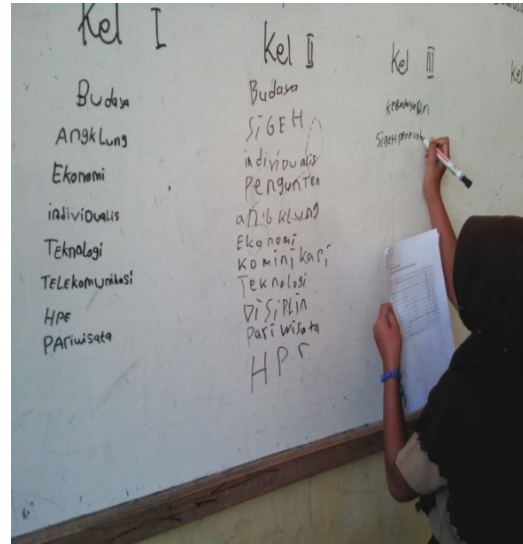 Kel I
Budaya
Angklung
Ekonomi
individualis
Teknologi
TELEkomunikasi
HPE
PAriwisata
Kel II
Budaya
SiGEH
individualis
Pengunten
angklung
Ekonomi
Kominikasi
Teknologi
DiSiPLin
Pariwisata
HPr
Kel III
KEBudayaan
SiGEH
Kel